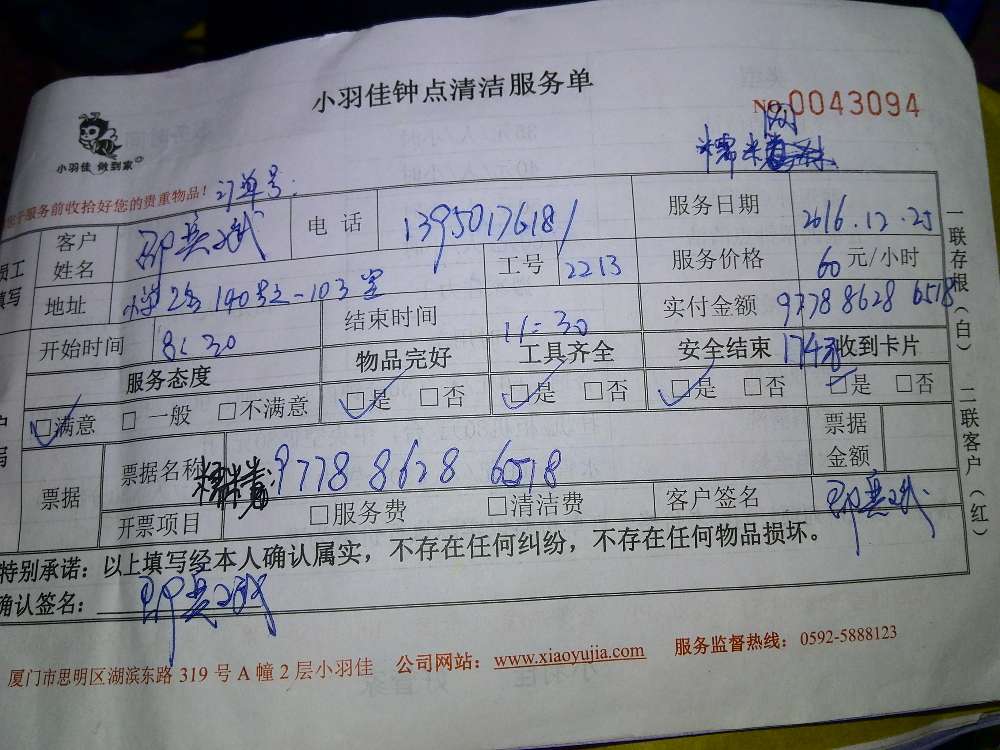 小羽佳钟点清洁服务单
No 0043094
小羽佳 做到家
糯米网
于服务前收拾好您的贵重物品！ 订单号:
员工填写
客户姓名 电话 13950176181 服务日期 2016.12.25
地址 140号之一103室 工号 2213 服务价格 60 元/小时
开始时间 8:30 结束时间 11:30 实付金额 9778 8628 6518
174 收到卡片
服务态度 物品完好 工具齐全 安全结束
□满意 □一般 □不满意 □是 □否 □是 □否 □是 □否 □是 □否
票据 票据名称 糯米 9778 8628 6518 票据金额
开票项目 □服务费 □清洁费 客户签名
特别承诺：以上填写经本人确认属实，不存在任何纠纷，不存在任何物品损坏。
确认签名：
一联存根（白） 二联客户（红）
厦门市思明区湖滨东路 319 号 A 幢 2 层小羽佳 公司网站：www.xiaoyujia.com 服务监督热线：0592-5888123